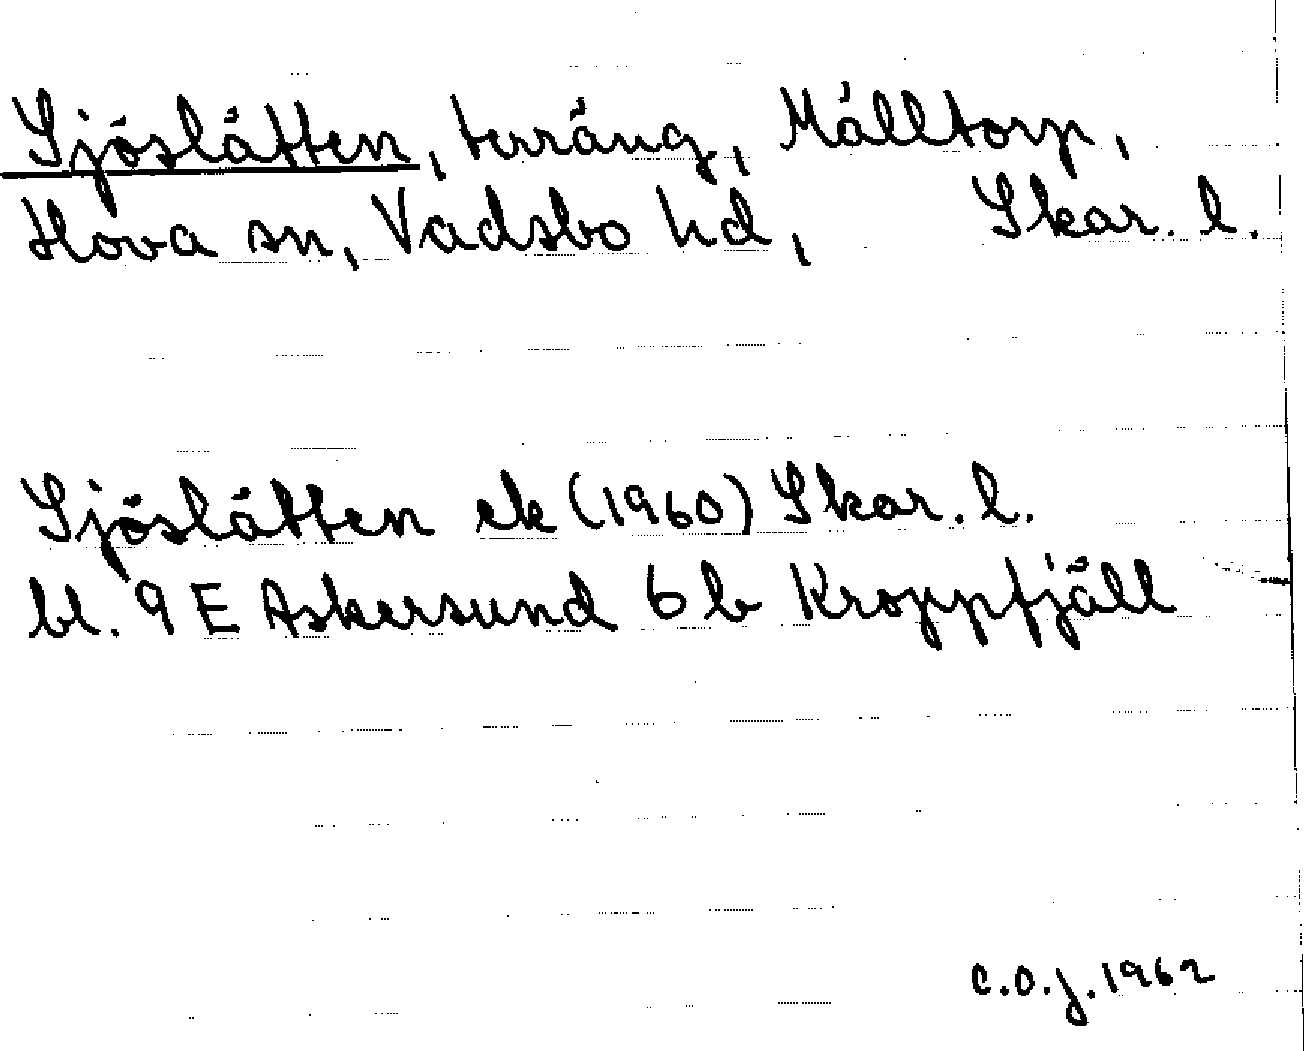 Sjöslätten, terräng, Mälltorp,
Hova sn, Vadsbo hd, Skar. l.
Sjöslätten ek (1960) Skar. l.
bl. 9 E Askersund 6 b Kroppfjäll
C.O.J. 1962